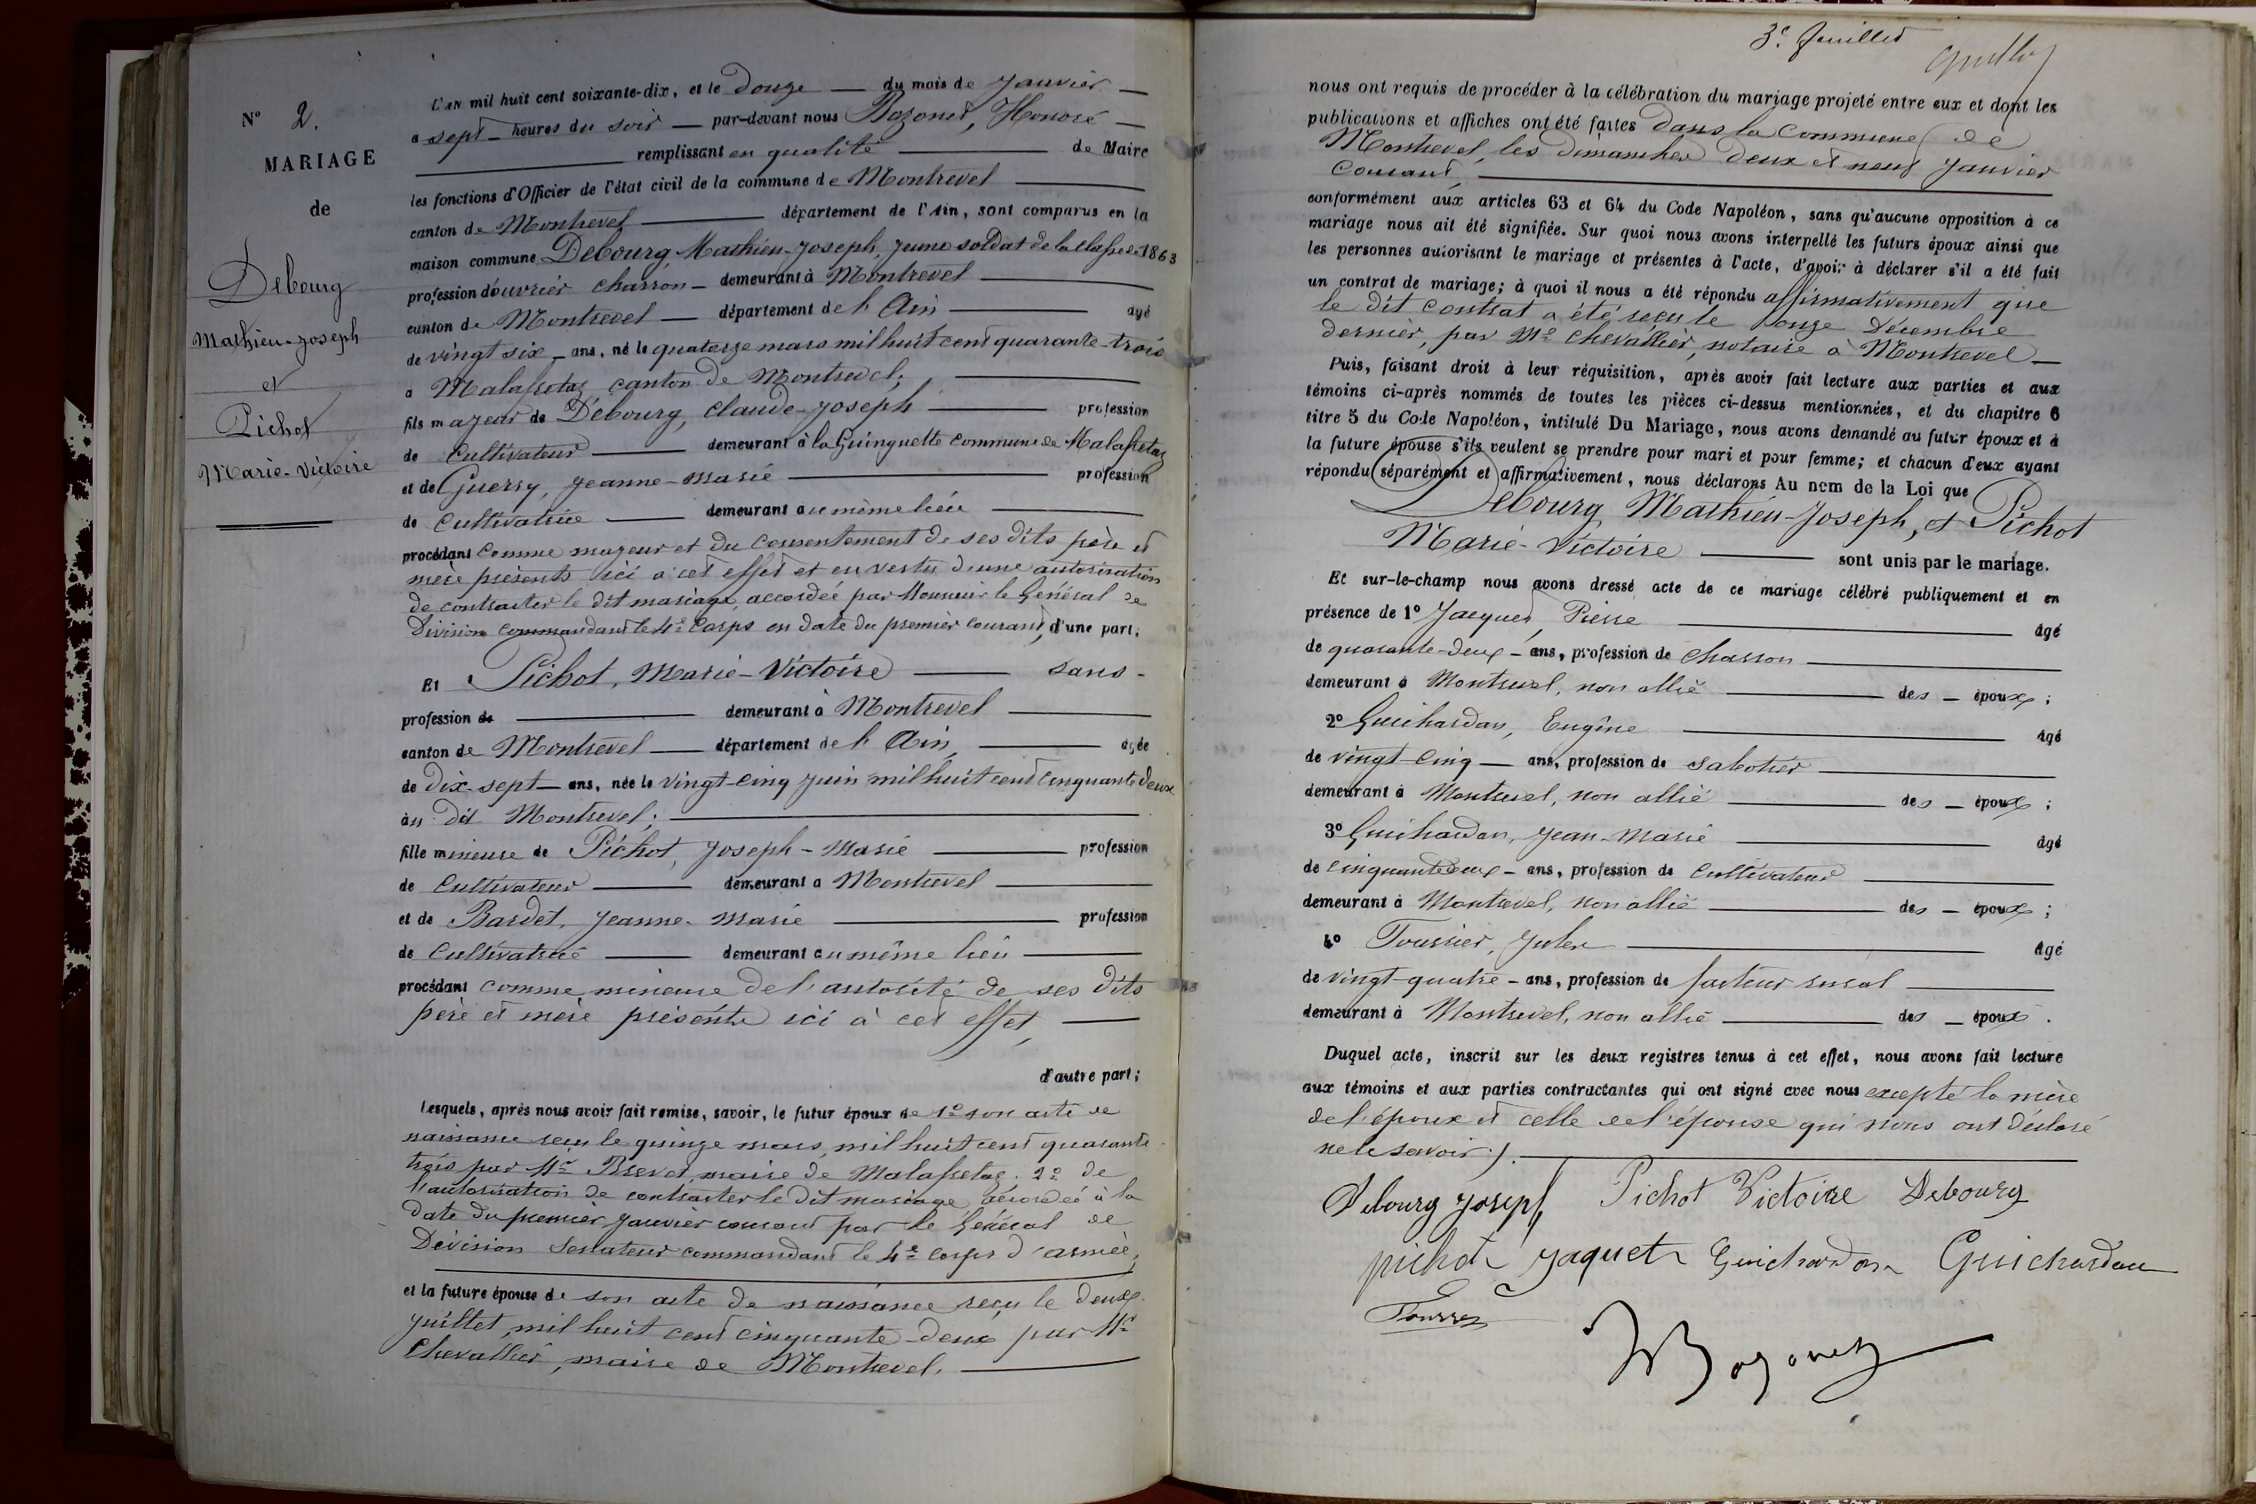 N° 2.
MARIAGE
de
Debourg
Mathieu-Joseph
et
Pichot
Marie-Victoire
L'AN mil huit cent soixante-dix, et le Douze du mois de Janvier
a sept heures du soir par-devant nous Bozonet, Honoré
remplissant en qualité de Maire
les fonctions d'Officier de l'état civil de la commune de Montrevel
canton de Montrevel département de l'Ain, sont comparus en la
maison commune Debourg, Mathieu-Joseph, Jeune soldat de la classe de 1863
profession d'ouvrier charron demeurant à Montrevel
canton de Montrevel département de l'Ain agé
de vingt six ans, né le quatorze mars mil huit cent quarante-trois
a Malafretaz canton de Montrevel;
fils majeur de Debourg, Claude-Joseph profession
de Cultivateur demeurant à la Guinguette commune de Malafretaz
et de Guerry, Jeanne-Marie profession
de Cultivatrice demeurant au même lieu
procédant comme majeur et du consentement de ses dits père et
mère présents ici à cet effet et en vertu d'une autorisation
de contracter le dit mariage, accordée par Monsieur le Général de
Division commandant le 4e Corps en date du premier courant, d'une part;
Et Pichot, Marie-Victoire sans
profession de demeurant à Montrevel
canton de Montrevel département de l'Ain, agée
de dix-sept ans, née le vingt-cinq Juin mil huit cent cinquante deux
au dit Montrevel;
fille mineure de Pichot, Joseph-Marie profession
de Cultivateur demeurant a Montrevel
et de Bardet, Jeanne-Marie profession
de Cultivatrice demeurant au même lieu
procédant comme mineure de l'autorité de ses dits
père et mère présents ici à cet effet,
d'autre part;
Lesquels, après nous avoir fait remise, savoir, le futur époux de 1° son acte de
naissance reçu le quinze mars, mil huit cent quarante-
trois par Mr Brevet, maire de Malafretaz. 2° de
l'autorisation de contracter le dit mariage accordée à la
date du premier Janvier courant par le Général de
Division Sénateur commandant le 4e Corps d'armée,
et la future épouse de son acte de naissance reçu le deux
Juillet, mil huit cent cinquante-deux par Mr
Chevallier, maire de Montrevel.
3e feuillet
nous ont requis de procéder à la célébration du mariage projeté entre eux et dont les
publications et affiches ont été faites dans la commune de
Montrevel, les dimanches deux et neuf Janvier
courant,
conformément aux articles 63 et 64 du Code Napoléon, sans qu'aucune opposition à ce
mariage nous ait été signifiée. Sur quoi nous avons interpellé les futurs époux ainsi que
les personnes autorisant le mariage et présentes à l'acte, d'avoir à déclarer s'il a été fait
un contrat de mariage; à quoi il nous a été répondu affirmativement que
le dit contrat a été reçu le onze Décembre
dernier, par Me Chevallier, notaire à Montrevel
Puis, faisant droit à leur réquisition, après avoir fait lecture aux parties et aux
témoins ci-après nommés de toutes les pièces ci-dessus mentionnées, et du chapitre 6
titre 5 du Code Napoléon, intitulé Du Mariage, nous avons demandé au futur époux et à
la future épouse s'ils veulent se prendre pour mari et pour femme; et chacun d'eux ayant
répondu séparément et affirmativement, nous déclarons Au nom de la Loi que
Debourg Mathieu-Joseph, et Pichot
Marie-Victoire sont unis par le mariage.
Et sur-le-champ nous avons dressé acte de ce mariage célébré publiquement et en
présence de 1° Jacquet, Pierre âgé
de quarante-deux ans, profession de charron
demeurant à Montrevel, non allié des époux;
2° Guichardan, Eugène âgé
de vingt-cinq ans, profession de sabotier
demeurant à Montrevel, non allié des époux;
3° Guichardan, Jean-Marie âgé
de cinquante deux ans, profession de Cultivateur
demeurant à Montrevel, non allié des époux;
4° Toursier, Jules âgé
de vingt-quatre ans, profession de facteur rural
demeurant à Montrevel, non allié des époux.
Duquel acte, inscrit sur les deux registres tenus à cet effet, nous avons fait lecture
aux témoins et aux parties contractantes qui ont signé avec nous excepté la mère
de l'époux et celle de l'épouse qui nous ont déclaré
ne le savoir).
Debourg Joseph Pichot Victoire Debourg
pichot Jaquet Guichardan Guichardan
Bozonet